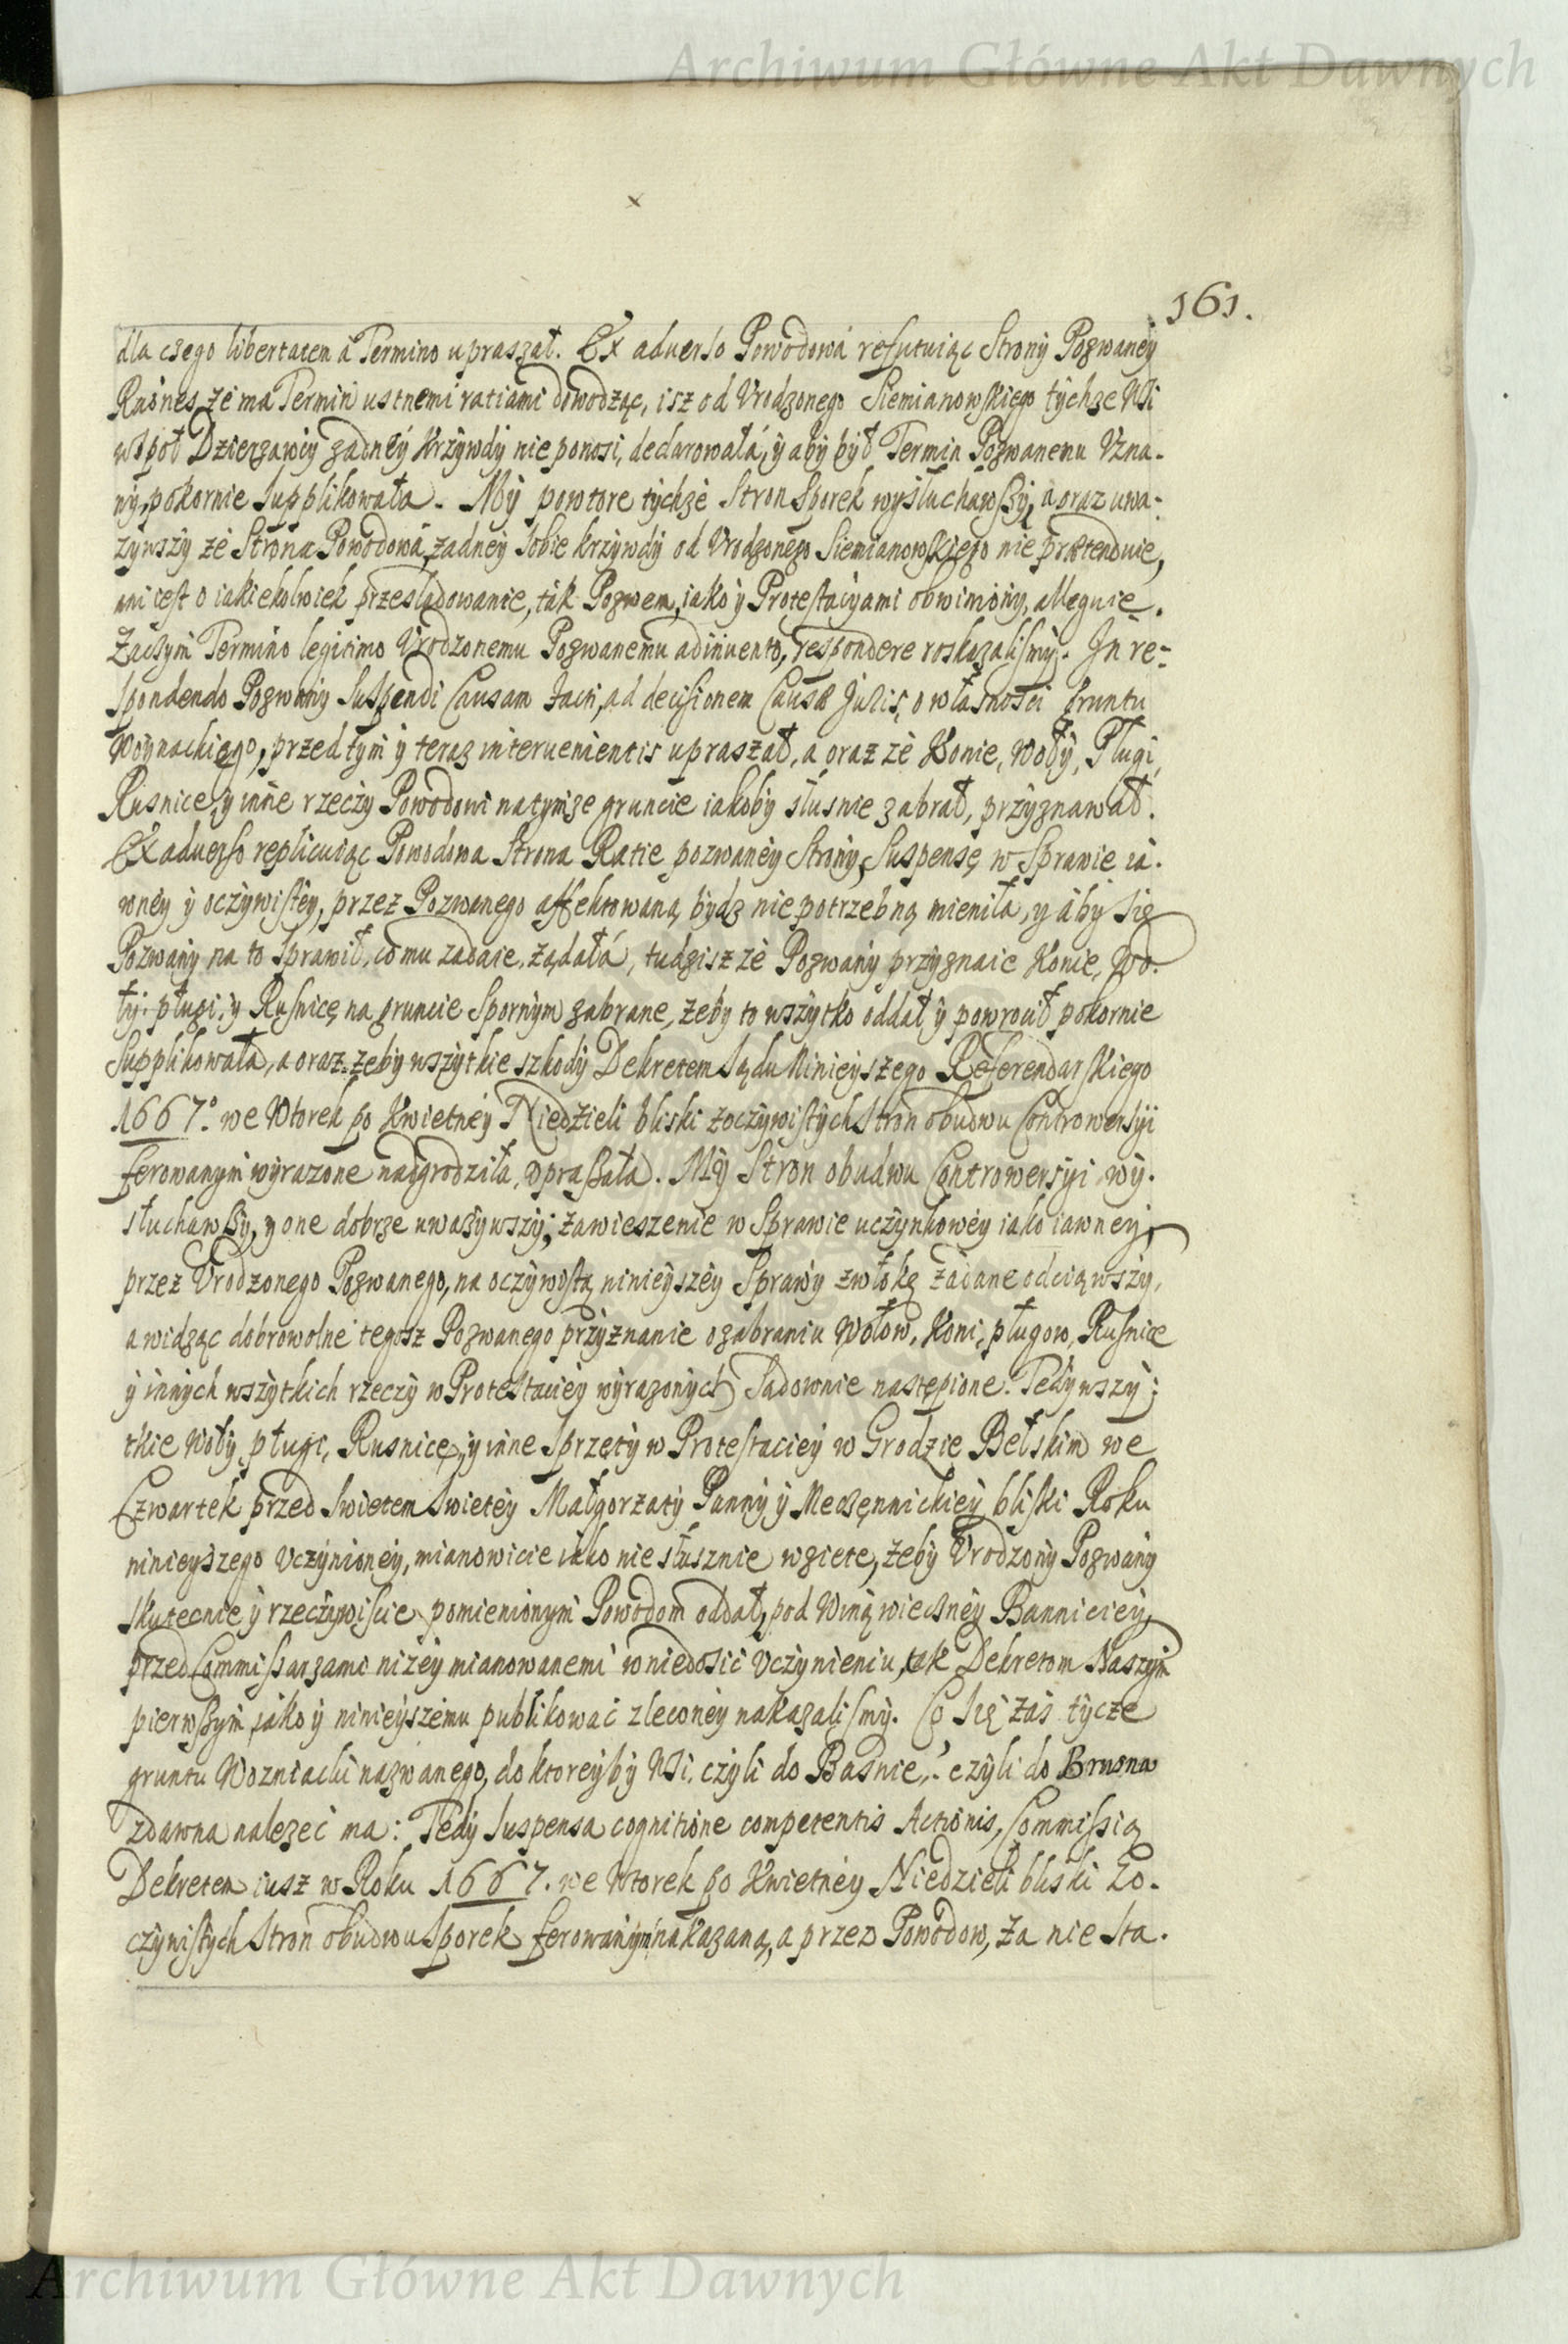 Archiwum Główne Akt Dawnych
161.
dla czego libertatem a Termino upraszał. Ex aduerso Powodowá refutuiąc Strony Pozwaney
Raönes, że ma Termin ustnemi ratiami dowodząc, isz od Vrodzonego Siemianowskiego tychże Wsi
wspoł Dzierzawcy zadney Krzywdy nie ponosi, declarowałá, y aby był Termin Pozwanemu Vzna-
ny, pokornie supplikowała. My powtore tychże Stron Sporek wysłuchawszy, a oraz uwa-
zywszy że Strona Powodowá, zadney sobie krzywdy od Vrodzonego Siemianowskiego nie prætenduie,
ani iest o iakiekolwiek przesladowanie, tak Pozwem, iako y Protestacyami obwiniony, alleguie.
Zaczym Termino legitimo Vrodzonemu Pozwanemu adinuento, respondere roskazalismy. In re-
spondendo Pozwany Suspendi Causam facti, ad decisionem Causæ Juris, o własności gruntu
Woynackiego, przed tym y teraz interuenientis upraszał, a oraz że Konie, Woły, Pługi,
Rusnice, y inne rzeczy Powodowi na tymze gruncie iakoby słusnie zabrał, przyznawał.
Ex aduerso replicuiąc Powodowa Strona Ratie pozwaney Strony, Suspensę w Sprawie ia-
wney y oczywistey, przez Pozwanego affektowaną, bydz niepotrzebną mieniła, y áby się
Pozwany na to sprawił, co mu zadaie, ządałá, tudzisz że Pozwany przyznaie Konie, Wo-
ły, pługi, y Rusnicę na gruncie Spornym zabrane, żeby to wszytko oddał y powrocił pokornie
Supplikowała, a oraz żeby wszytkie szkody Dekretem Sądu Ninieyszego Referendarskiego
1667.° we Wtorek po Kwietney Niedzieli bliski zoczywistych Stron obudwu Controwersyi
ferowanym wyrazone nadgrodziła, upraszała. My Stron obudwu Controwersyi wy-
słuchawszy, y one dobrze uwazywszy; zawieszenie w Sprawie uczynkowey iako iawney,
przez Vrodzonego Pozwanego, na oczywistą ninieyszey Sprawy zwłokę żądane odciąwszy,
a widząc dobrowolne tegosz Pozwanego przyznanie o zabraniu Wołow, Koni, pługow, Rusnice
y innych wszytkich rzeczy w Protestaciey wyrazonych Sądownie nastąpione. Tedy wszy-
tkie woły, pługi, Rusnicę, y inne sprzęty w Protestaciey w Grodzie Bełskim we
Czwartek przed Swietem Swietey Małgorzaty Panny y Męczęnnickiey bliski Roku
ninieyszego Vczynioney, mianowicie iako nie słusznie wziete, żeby Vrodzony Pozwany
skutecnie y rzeczywiscie pomienionym Powodom oddał, pod Winą wieczney Banniciey,
przed Commissarzami niżey mianowanemi w niedosić Vczynieniu, tak Dekretom Naszym
pierwszym, jako y ninieyszemu publikować zleconey nakazalismy. Co się zaś tycze
gruntu Wozniacki nazwanego, do ktoreyby Wsi, czyli do Basnie, czyli do Brusna
zdawna nalezeć ma: Tedy suspensa cognitione competentis Actionis, Commissią
Dekretem iusz w Roku 1667. we Wtorek po Kwietney Niedzieli bliski Zo-
czywistych Stron obudwu Sporek ferowanym nakazaną, a przez Powodow, za nie sta-
Archiwum Główne Akt Dawnych